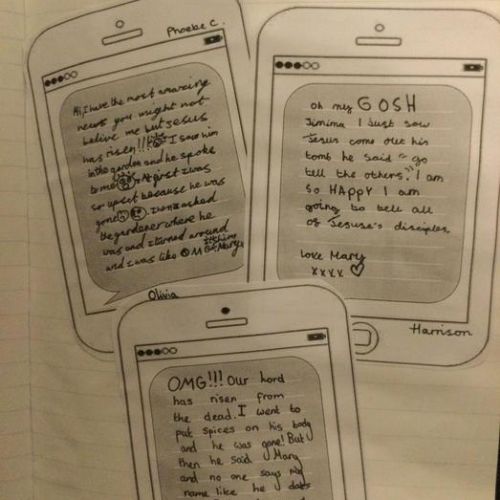 Phoebe C.
Hi, I have the most amazing
news you might not
belive me but Jesus
has risen!!! I saw him
in the garden and he spoke
to me. At first I was
so upset because he was
gone. I even asked
the gardener where he
was and I turned around
and I was like OMG its him
Mary
oh my GOSH
Jimima I Just saw
Jesus come out his
tomb he said "go
tell the others". I am
SO HAPPY I am
going to tell all
of Jesuse's disciples.
Love Mary
xxxx
Harrison
Olivia
OMG!!! Our lord
has risen from
the dead. I went to
put spices on his body
and he was gone! But
then he said Mary
and no one says my
name like he does